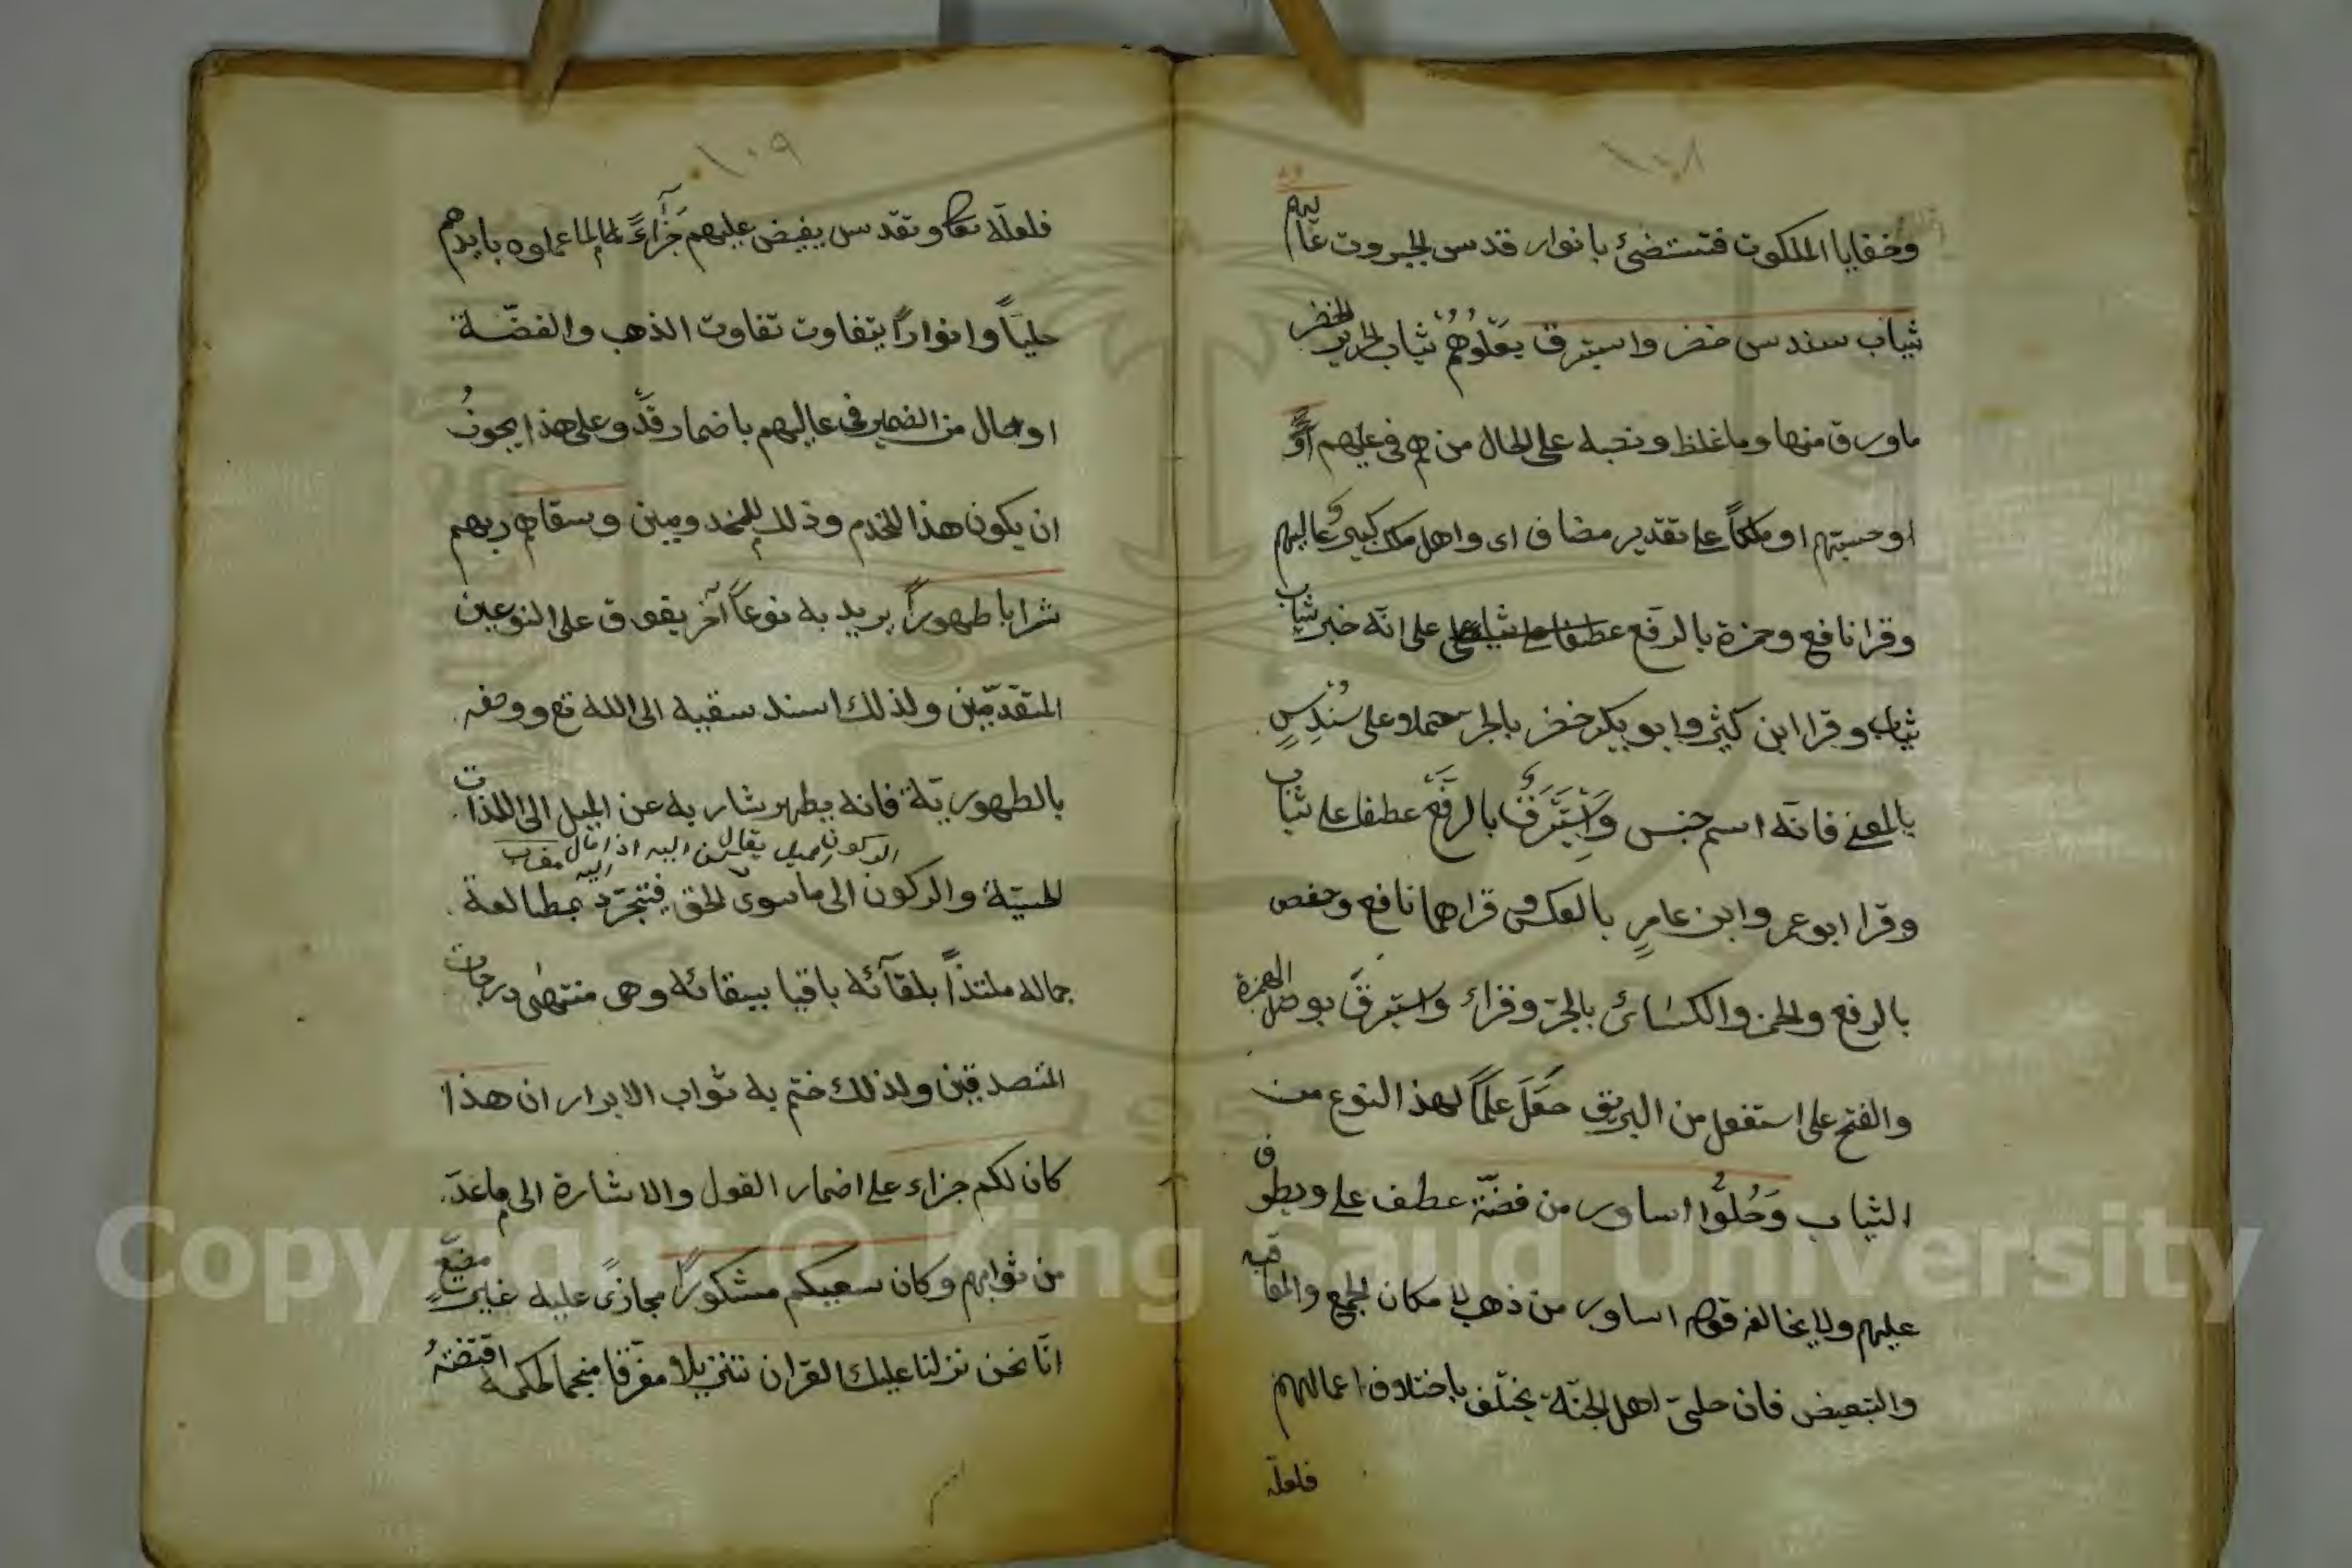 ١٠٨
وخفايا الملكوت فتستضئ بانوار قدس الجبروت عاليهم
ثياب سندس خضر واستبرق يعلوهم ثياب الحرير الخضر
مارق منها وما غلظ ونصبه على الحال من هم فى عليهم
او حسبتهم او ملكاً على تقدير مضاف اى واهل ملك كبير عاليهم
وقرا نافع وحمزة بالرفع على انه خبر ثياب
ثياب وقرا ابن كثير وابو بكر خضر بالجر حملا على سُنْدسٍ
بالمعنى فانه اسم جنس وَاِسْتَبْرَقٌ بالرفع عطفا على ثياب
وقرا ابو عمر وابن عامرٍ بالعكس وقراهما نافع وحفص
بالرفع والحمزه والكسائى بالجرّ وقرئ واستبرقَ بوصل الهمزة
والفتح على استفعل من البريق جعل علماً لهذا النوع من
الثياب وَحُلُّوا اساور من فضّة عطف على ويطوف
عليهم ولا يخالفه قوله اساور من ذهب لا مكان الجمع والمعاقبه
والتبعيض فان حلىّ اهل الجنّة يختلف باختلاف اعمالهم
فلعلّه
١٠٩
فلعلّه تعا وتقدس يفيض عليهم جَزآءً لما عملوه بايديهم
حليّاً وانواراً يتفاوت تفاوت الذهب والفضّة
او حال من الضمير فى عاليهم باضمار قَدْ وعلى هذا يجوزُ
ان يكون هذا للخدم وذلك للمخدومين وسقاهم ربهم
شرابا طهوراً يريد به نوعاً آخر يفوق على النوعين
المتقدّمين ولذلك اسند سقيه الى الله تع ووصفه
بالطهوريّة فانه يطهر شاربه عن الميل الى اللذات
الركون ميل يقال ركن اليه اذا مال اليه
الحسيّة والركون الى ما سوى الحق فتتجرّد بمطالعة
جماله ملتذاً بلقآئه باقيا ببقائه وهى منتهى درجات
المتصدقين ولذلك ختم به ثواب الابرار ان هذا
كان لكم جزاء على اضمار القول والاشارة الى ما عدّ
من ثوابهم وكان سعيكم مشكوراً مجازىً عليه غير مضيّع
انّا نحن نزلنا عليك القران تنزيلا مفرّقا منجما لحكمة اقتضتهُ
Copyright © King Saud University
1957